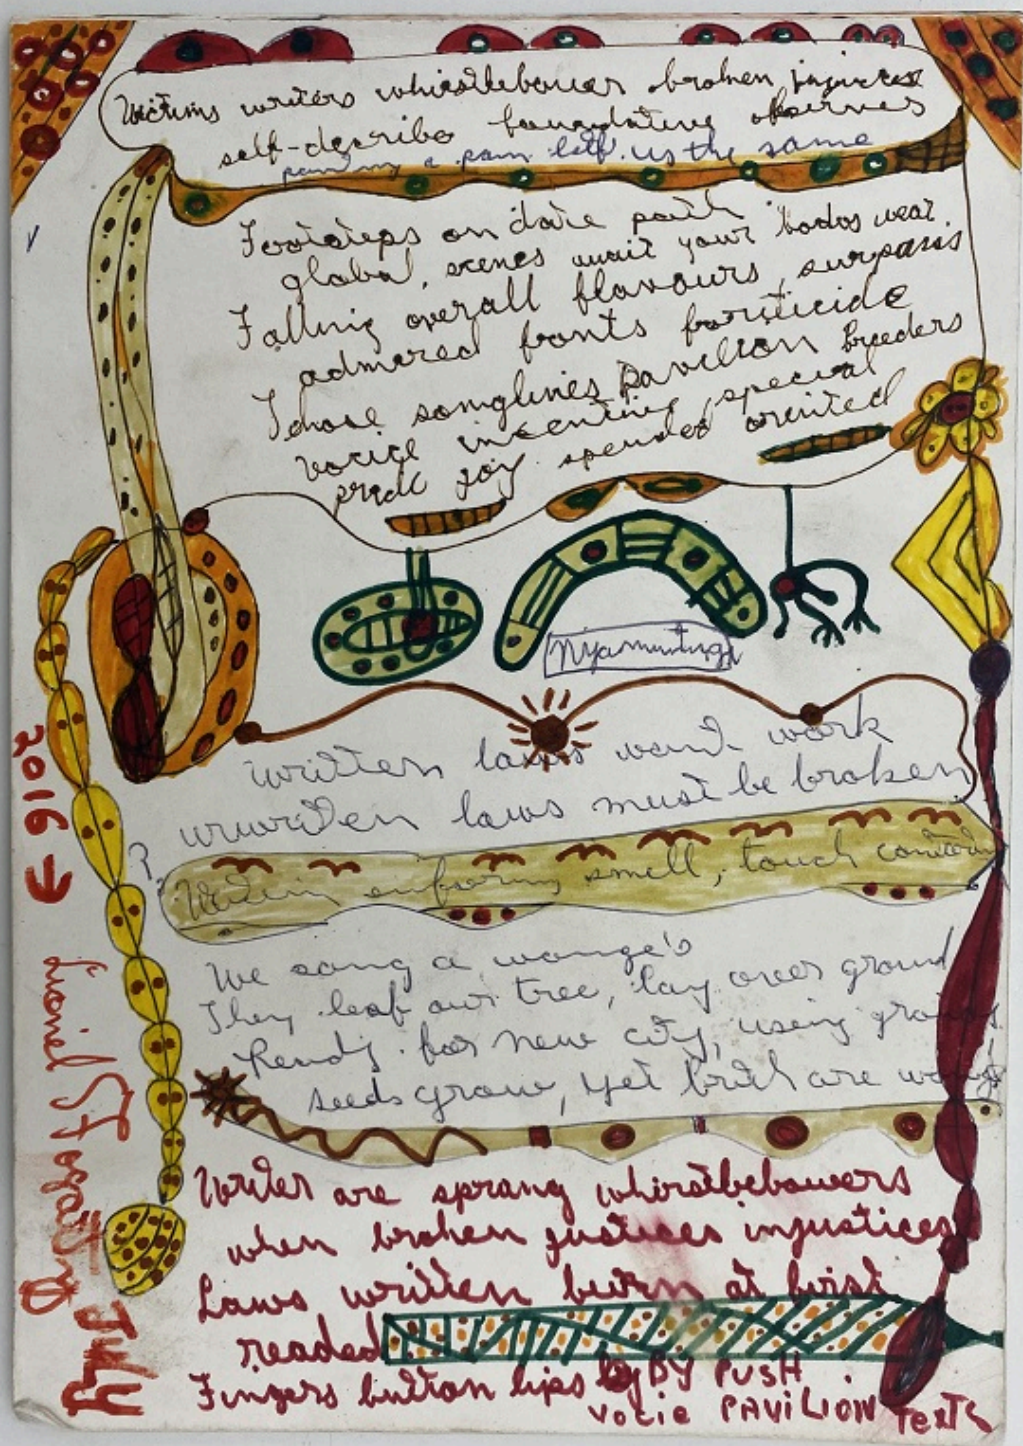 Victims writers whistlebower broken injustces
self-describe observes
a pain left us the same
Footsteps on date path
global, scenes await your bodos wear
Falling overall flavours, surpasis
admired fonts
Those songlines Pavilion Breeders
vocie incenting, special
pride joy spended orinted
Nyamuntingi
written laws wont work
unwriten laws must be broken
?
smell, touch
We song a wonge's
They leaf our tree, lay over ground
Ready for new city, using
seeds grow, yet birth are
Writer are sprang whirstbebowers
when broken justices injustices
Laws written burn at birst
readed
Fingers button lips by BY PUSH
vocie PAVILION TEXTS
2016 →
Lionel Fogarty July